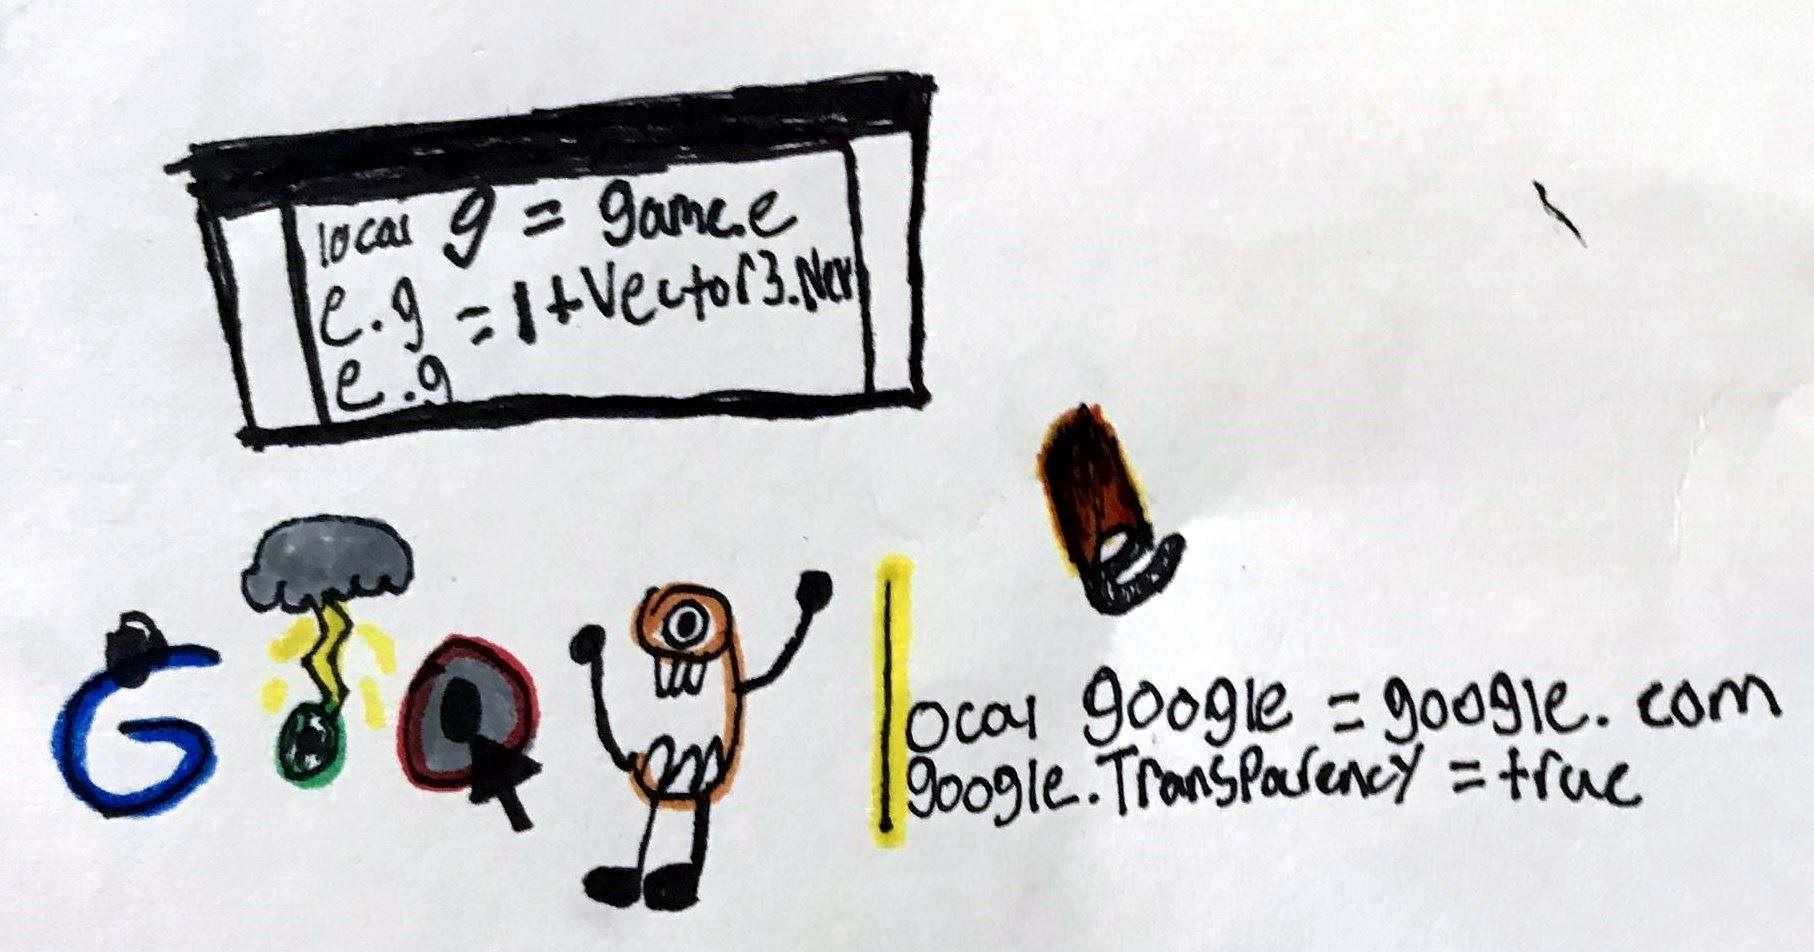 local g = game.e
e.g = 1+Vector3.New
e.g
Google
local google = google.com
google.Transparency = true